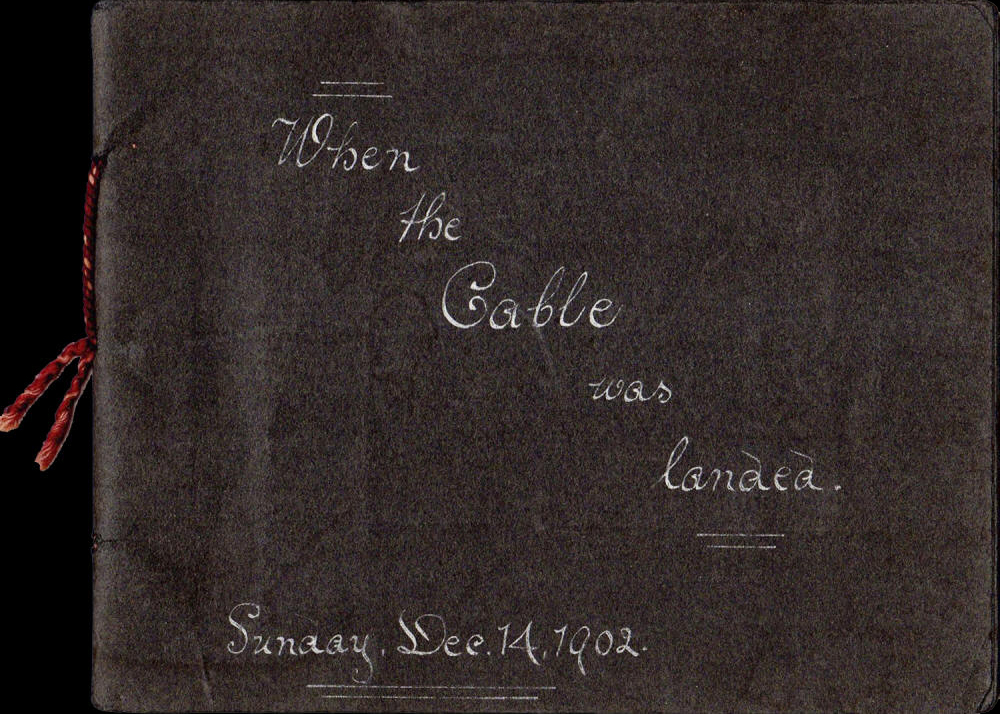 When
the
Cable
was
landed.
Sunday, Dec. 14, 1902.